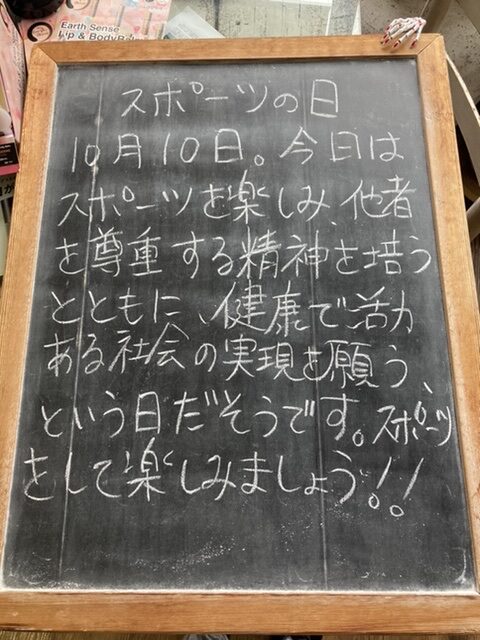 Earth Sense
Lip & BodyBa
スポーツの日
10月10日。今日は
スポーツを楽しみ、他者
を尊重する精神を培う
とともに、健康で活力
ある社会の実現を願う、
という日だそうです。スポーツ
をして楽しみましょう!!